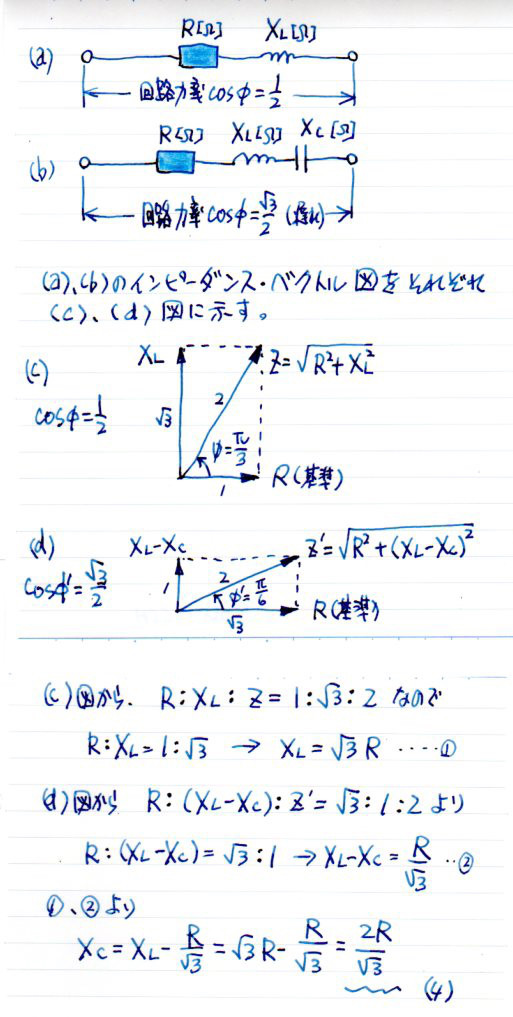 (a) R[Ω] X_L[Ω]
回路力率cosφ=1/2
(b) R[Ω] X_L[Ω] X_C[Ω]
回路力率cosφ=√3/2 (遅れ)
(a)、(b)のインピーダンス・ベクトル図をそれぞれ
(c)、(d)図に示す。
(c) X_L Z=√(R²+X_L²)
cosφ=1/2 √3 2 φ=π/3
1 R(基準)
(d) X_L-X_C Z'=√(R²+(X_L-X_C)²)
cosφ'=√3/2 1 2 φ'=π/6
√3 R(基準)
(c)図から、R:X_L:Z=1:√3:2 なので
R:X_L=1:√3 → X_L=√3R ‥‥①
(d)図から R:(X_L-X_C):Z'=√3:1:2 より
R:(X_L-X_C)=√3:1 → X_L-X_C=R/√3 ‥②
①、②より
X_C=X_L-R/√3=√3R-R/√3=2R/√3
(4)